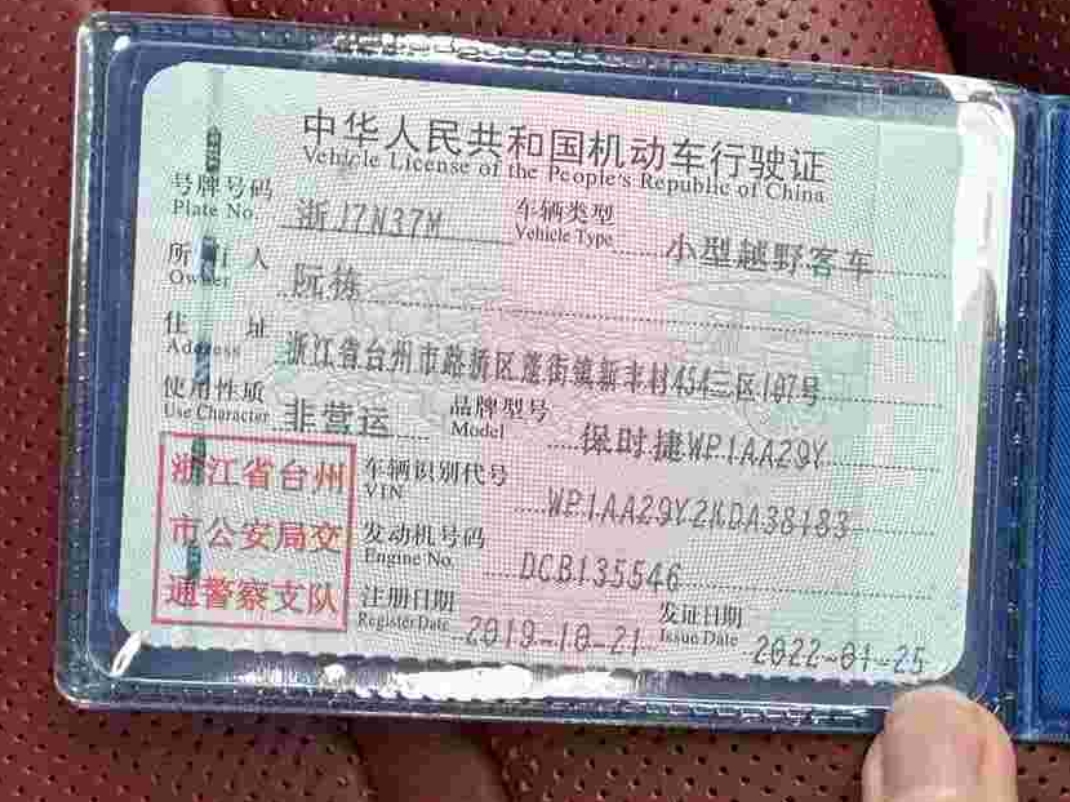 中华人民共和国机动车行驶证
Vehicle License of the People's Republic of China
号牌号码 浙J7N37M 车辆类型 小型越野客车
Plate No. Vehicle Type
所有人 阮栋
Owner
住址 浙江省台州市路桥区蓬街镇新丰村454三区107号
Address
使用性质 非营运 品牌型号 保时捷WP1AA29Y
Use Character Model
浙江省台州 车辆识别代号 WP1AA29Y2KDA38183
VIN
市公安局交 发动机号码 DCB135546
Engine No.
通警察支队 注册日期 2019-10-21 发证日期 2022-01-25
Register Date Issue Date